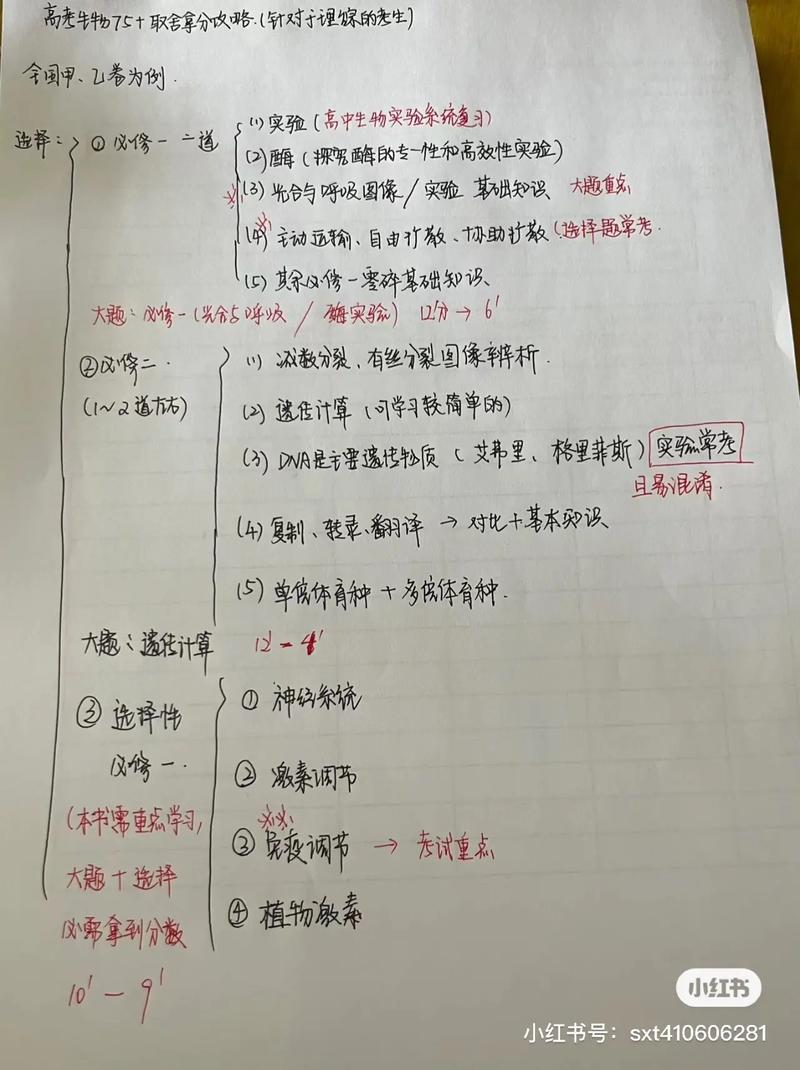 高考生物75+取舍拿分攻略.(针对于理综的考生)
全国甲、乙卷为例.
选择:
① 必修一 二道
(1) 实验 (高中生物实验系统复习)
(2) 酶 (探究酶的专一性和高效性实验)
(3) 光合与呼吸图像/实验 基础知识 大题重点
(4) 主动运输、自由扩散、协助扩散 (选择题常考.
(5) 其余必修一零碎基础知识、
大题: 必修一(光合与呼吸 / 酶实验) 12分→6'
② 必修二.
(1~2道左右)
(1) 减数分裂、有丝分裂图像辨析.
(2) 遗传计算 (可学习较简单的)
(3) DNA是主要遗传物质 (艾弗里、格里菲斯) 实验常考
且易混淆.
(4) 复制、转录、翻译 → 对比+基本知识
(5) 单倍体育种 + 多倍体育种.
大题: 遗传计算 12'-4'
③ 选择性
必修一.
(本书需重点学习,
大题+选择
必需拿到分数
10'-9'
① 神经系统
② 激素调节
③ 免疫调节 → 考试重点
④ 植物激素
小红书
小红书号: sxt410606281